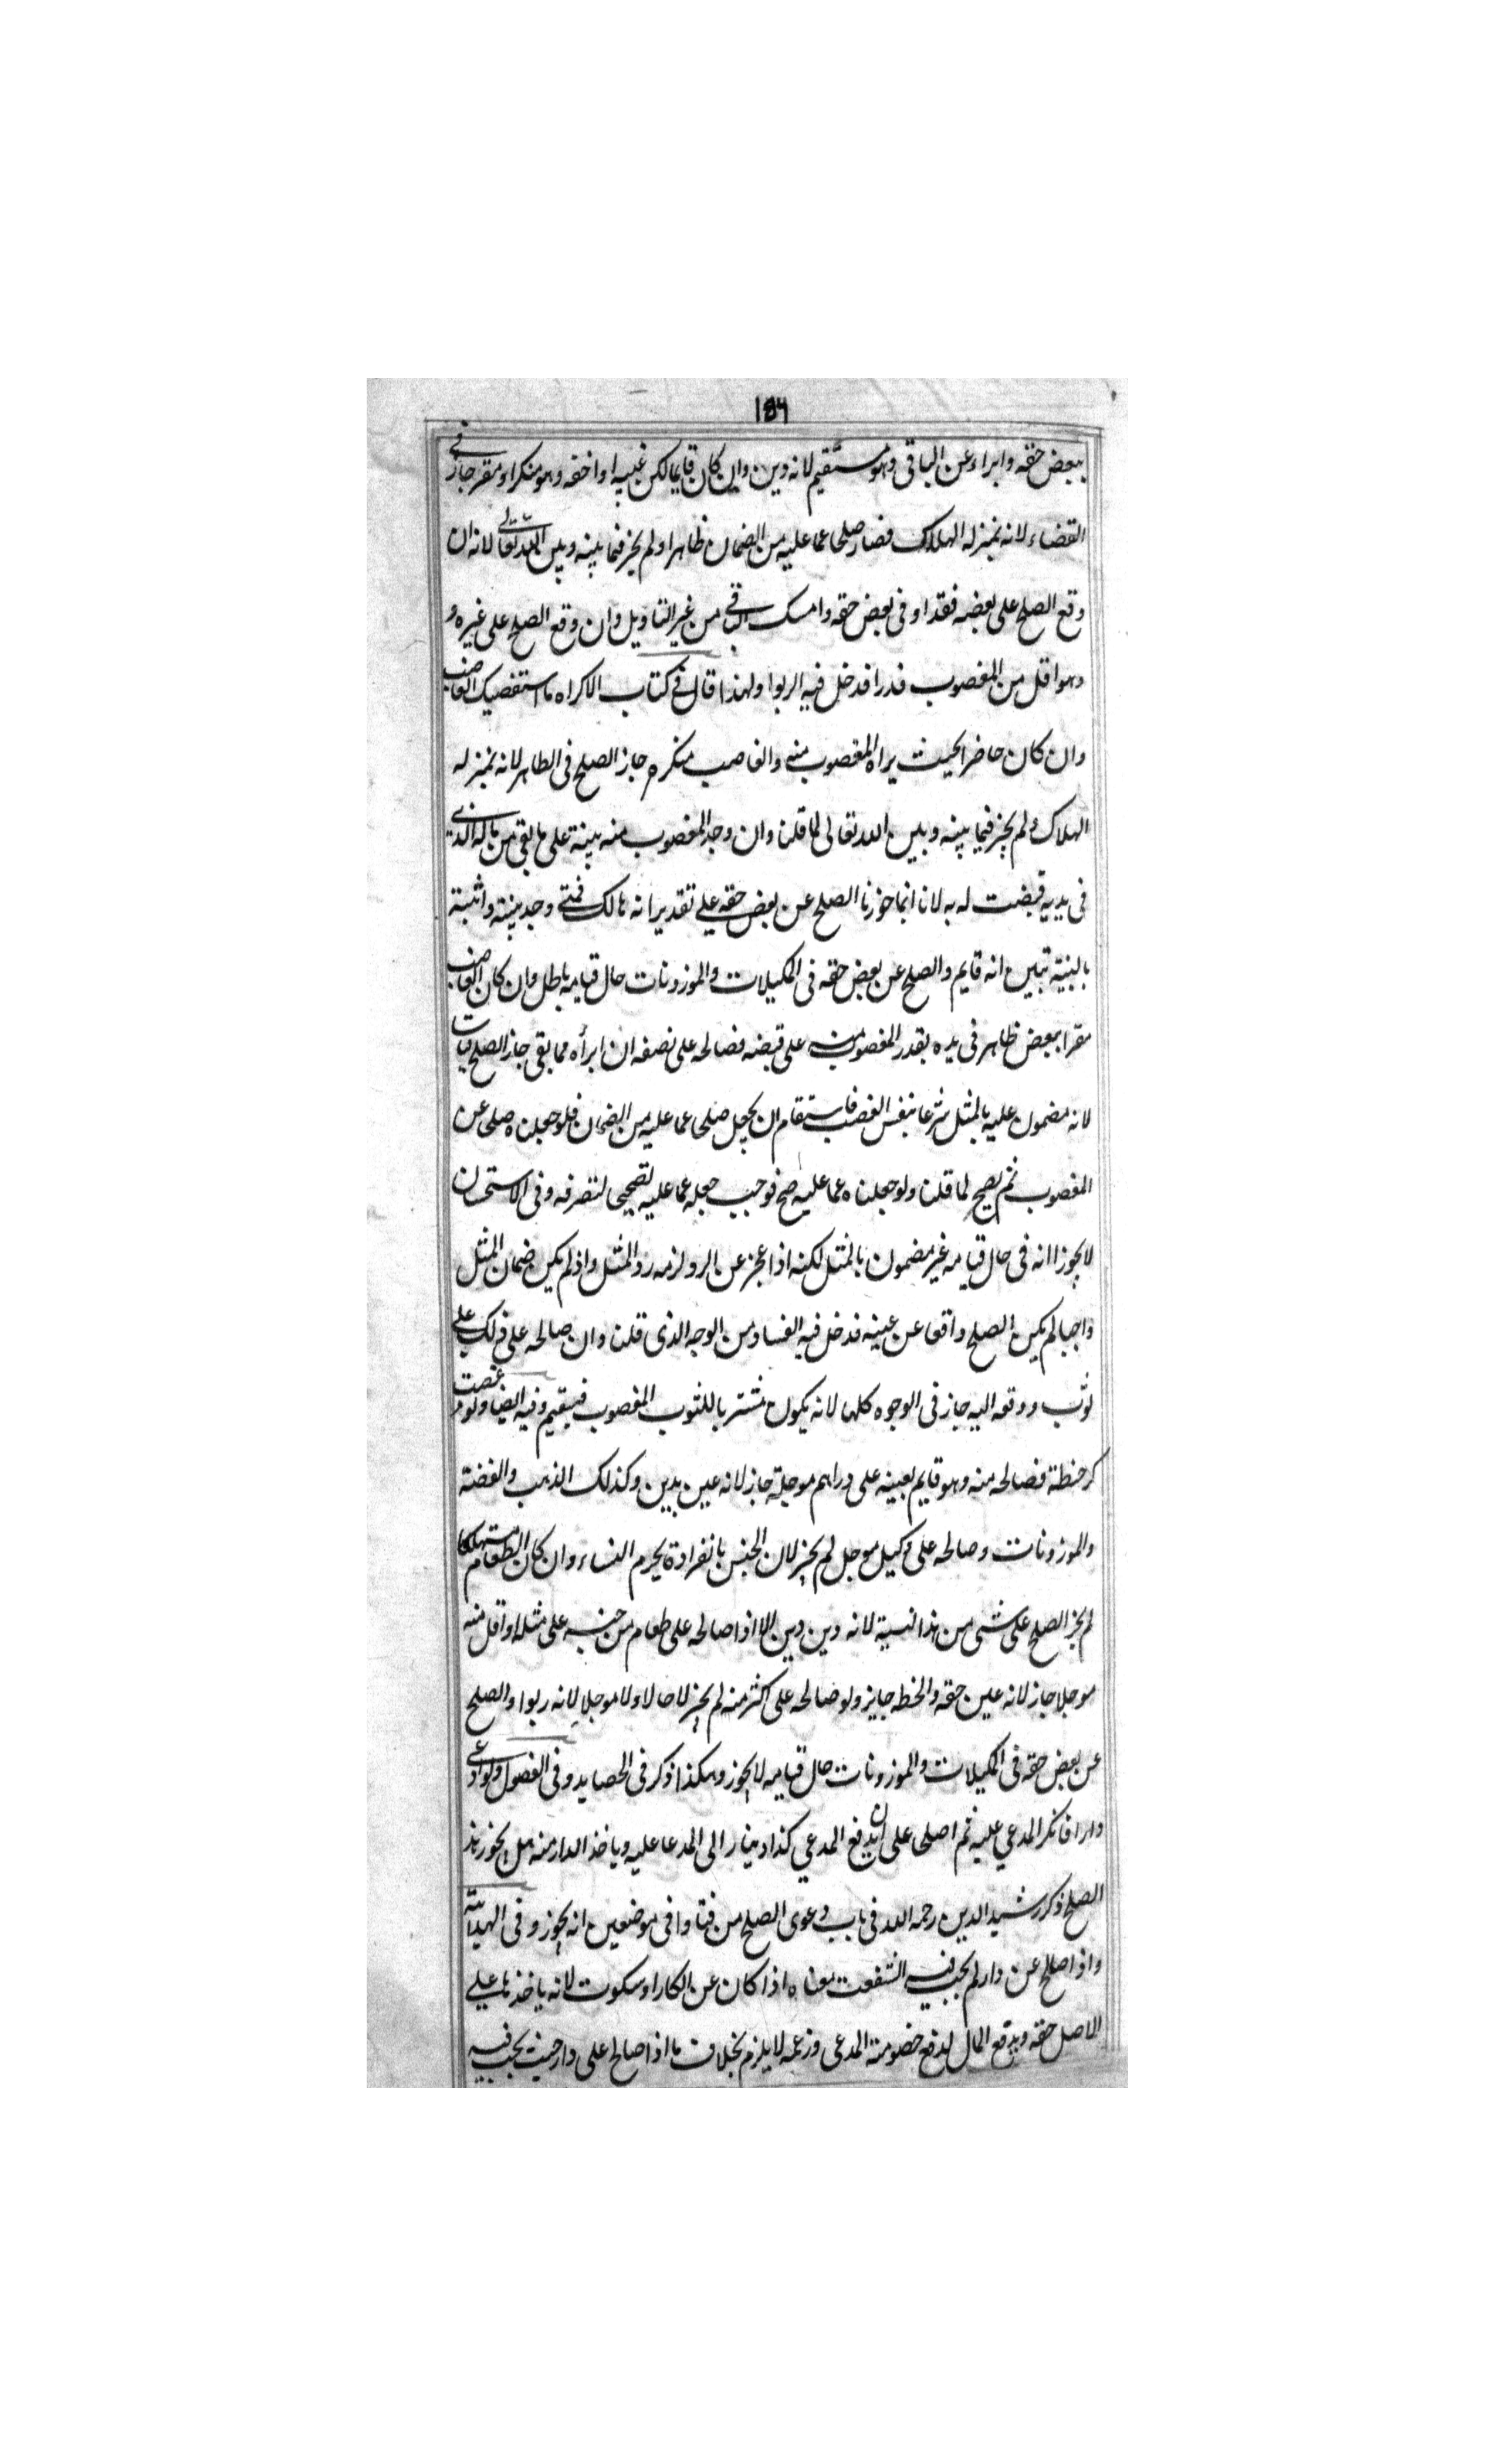 ١٥٦
ببعض حقه وابراء عن الباقى وهو مستقيم لانه دين وان كان قايما لكن غيبه او اخفه وهو منكر او مقر جاز فى
القضاء لانه بمنزله الهلاك فصار صلحا عما عليه من الضمان ظاهرا ولم يجز فيما بينه وبين الله تعالى لانه ان
وقع الصلح على بعضه فقد اوفى بعض حقه وامسك الباقى من غير التاويل وان وقع الصلح على غيره و
وهو اقل من المغصوب قدرا فدخل فيه الربوا ولهذا قال فى كتاب الاكراه ما استفضيك الغاصب
وان كان حاضر الحيث يراه المغصوب منه والغاصب منكره جاز الصلح فى الظاهر لانه بمنزله
الهلاك ولم يجز فيما بينه وبين الله تعالى لما قلنا وان وجد المغصوب منه بينة على ما بقى من ماله الذى
فى يديه قبضت له به لانا انما جوزنا الصلح عن بعض حقه على تقدير انه هالك فمتى وجد بينة واثبته
بالبنية تبين انه قايم والصلح عن بعض حقه فى المكيلات والموزونات حال قيامه باطل وان كان الغاصب
مقرا ببعض ظاهر فى يده بقدر المغصوب منه على قبضه فصالحه على نصفه ان ابرأه مما بقى جاز الصلح قياسا
لانه مضمون عليه بالمثل شرعا بنفس الغصب فاستقام ان يجعل صلحا عما عليه من الضمان فلو جعلناه صلحا عن
المغصوب لم يصح لما قلنا ولو جعلناه عما عليه صح فوجب جعله عما عليه تصحيحا لتصرفه وفى الاستحسان
لا يجوز اانه فى حال قيامه غير مضمون بالمثل لكنه اذا عجز عن الرد لزمه رد المثل واذ لم يكن ضمان المثل
واجبا لم يكن الصلح واقعا عن عينه فدخل فيه الفساد من الوجه الذى قلنا وان صالحه على ذلك على
ثوب ودفعه اليه جاز فى الوجوه كلها لانه يكون مشتريا للثوب المغصوب فيستقيم وفيه ايضا ولو غصب
كر حنطة فصالحه منه وهو قايم بعينه على دراهم موجلة جاز لانه عين بدين وكذلك الذهب والفضة
والموزونات وصالحه على كيل موجل لم يجز لان الجنس بانفرادة يحرم النساء وان كان الطعام مستهلكا
لم يجز الصلح على شى من هذا نسية لانه دين بدين الا اذا صالحه على طعام من جنسه على مثله او اقل منه
موجلا جاز لانه عين حقه والحط جايز ولو صالحه على اكثر منه لم يجز لا حالا ولا موجلا لانه ربوا والصلح
عن بعض حقه فى المكيلات والموزونات حال قيامه لا يجوز وهكذا ذكر فى الحصايد وفى الفصول ولو ادعى
دارا فانكر المدعى عليه ثم اصلحا على ان يدفع المدعي كذا دينار الى المدعا عليه وياخذ الدار منه هل يجوز هذا
الصلح ذكر رشيد الدين رحمه الله فى باب دعوى الصلح من فتاوا فى موضعين انه يجوز وفى الهداية
واذا صالح عن دار لم يجب فيه الشفعت معناه اذا كان عن انكار او سكوت لانه ياخذها على
الاصل حقه ويدفع المال لدفع خصومة المدعى وزعمه لا يلزم بخلاف ما اذا صالح على دار حيث يجب فيه